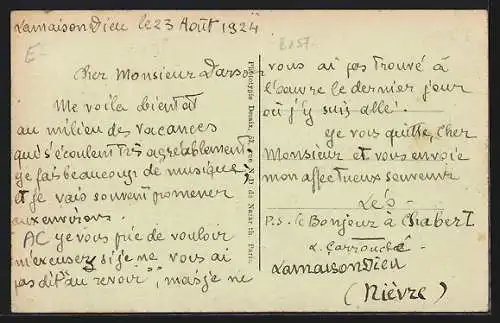 Lamaison Dieu le 23 Août 1924
E-
Cher Monsieur
Me voilà bientôt
au milieu des vacances
qui s'écoulent très agréablement
je fais beaucoup de musique,
et je vais souvent promener
aux environs.
AC je vous prie de vouloir
m'excuser si je ne vous ai
pas dit "au revoir", mais je ne
Phototypie Desaix, rue N.-D. de Nazareth, Paris.
vous ai pas trouvé à
l'œuvre le dernier jour
où j'y suis allé.
je vous quitte, Cher
Monsieur et vous envoie
mon affectueux souvenir
P.S. le Bonjour à Chabert
Lamaison Dieu
(Nièvre)